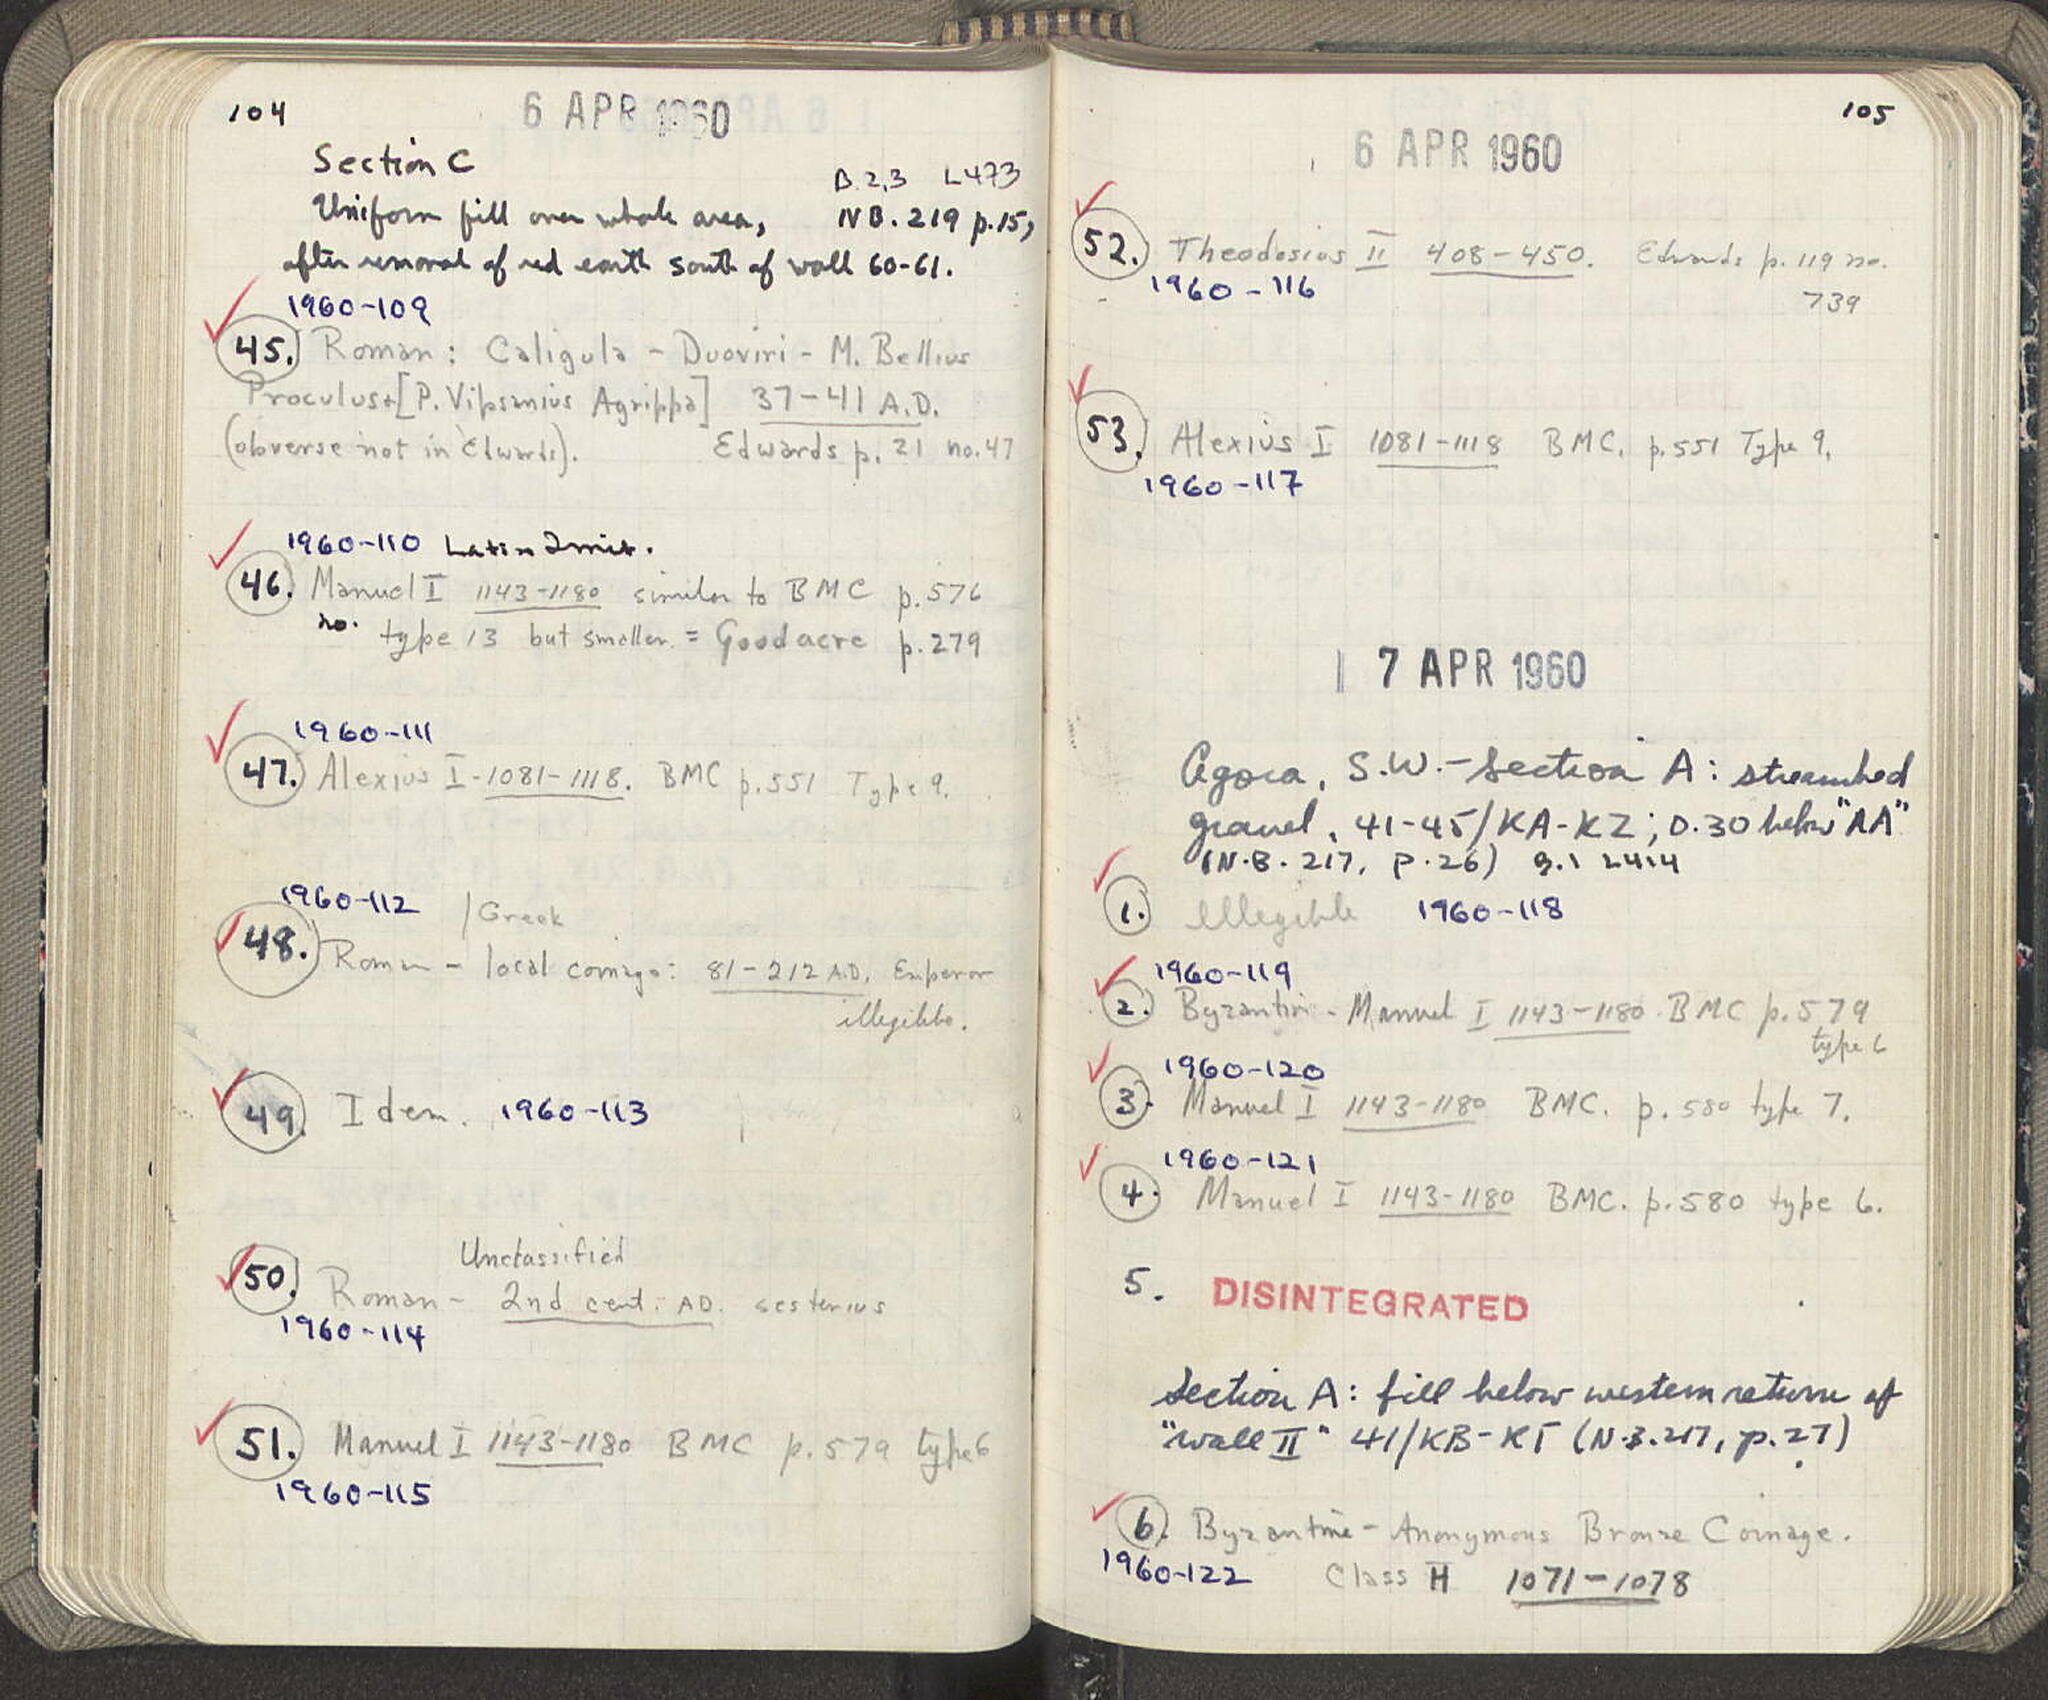 104
6 APR 1960
Section C
B. 2,3 L473
Uniform fill over whole area, NB. 219 p.15,
after removal of red earth south of wall 60-61.
1960-109
45. Roman: Caligula - Duoviri - M. Bellius
Proculus + [P. Vipsanius Agrippa] 37-41 A.D.
(obverse not in Edwards). Edwards p. 21 no. 47
1960-110 Latin Imit.
46. Manuel I 1143-1180 similar to BMC p. 576
no. type 13 but smaller = Goodacre p. 279
1960-111
47. Alexius I - 1081-1118. BMC p. 551 Type 9.
1960-112 / Greek
48. Roman - local coinage: 81-212 A.D. Emperor
illegible.
49. Idem. 1960-113
Unclassified
50. Roman - 2nd cent. AD. sestertius
1960-114
51. Manuel I 1143-1180 BMC p. 579 type 6
1960-115
105
6 APR 1960
52. Theodosius II 408-450. Edwards p. 119 no.
739
1960-116
53. Alexius I 1081-1118 BMC. p. 551 Type 9.
1960-117
7 APR 1960
Agora, S.W. - Section A: streambed
gravel, 41-45/KA-KZ; 0.30 below "AA"
(N.B. 217, p. 26) L414
1. Illegible 1960-118
1960-119
2. Byzantine - Manuel I 1143-1180 BMC p. 579
type 6
1960-120
3. Manuel I 1143-1180 BMC. p. 580 type 7.
1960-121
4. Manuel I 1143-1180 BMC. p. 580 type 6.
5. DISINTEGRATED
Section A: fill below western return of
"wall II" 41/KB-KT (N.B. 217, p. 27)
6. Byzantine - Anonymous Bronze Coinage.
1960-122 Class H 1071-1078